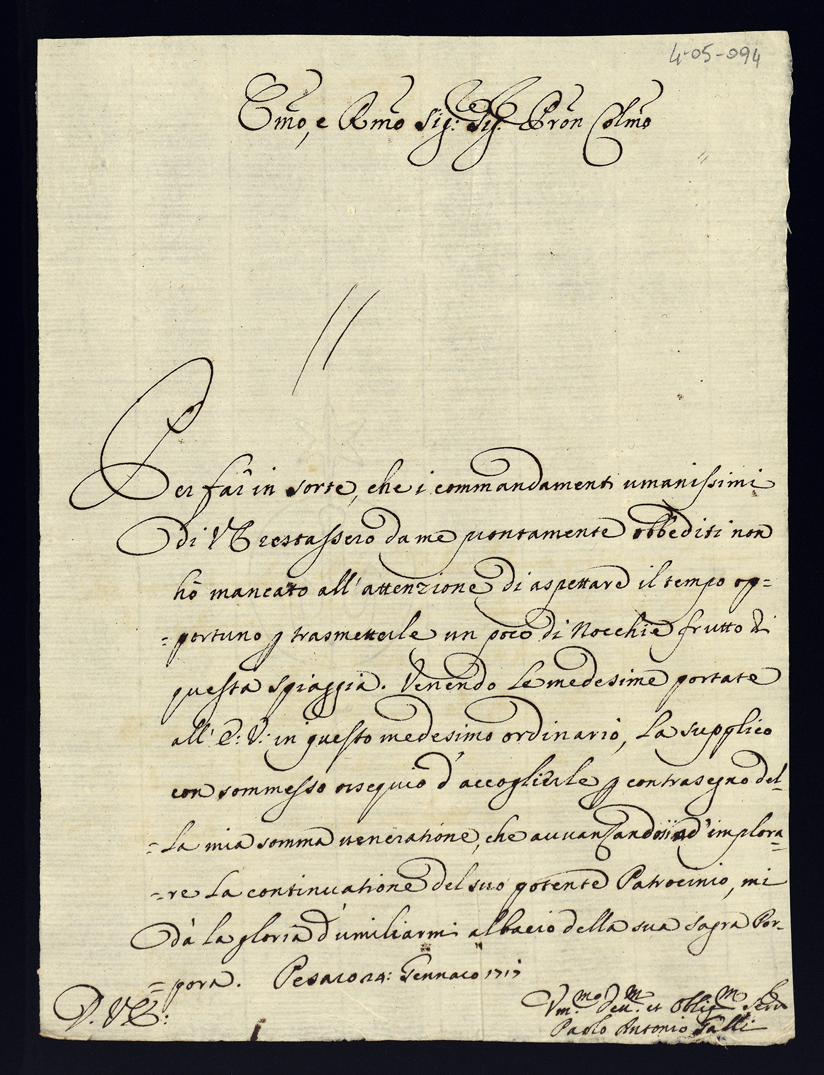 4-05-094
Emo, e Rmo Sig: Sig: Pron Colmo
Per far in sorte, che i commandamenti umanissimi
di VE restassero da me prontamente obbediti non
hò mancato all'attenzione di aspettare il tempo op=
=portuno p trasmetterle un poco di Nocchie frutto di
questa spiaggia. Venendo le medesime portate
all'E: V: in questo medesimo ordinario, La supplico
con sommesso ossequio d'accoglierle p contrasegno del=
=la mia somma veneratione, che avvanzandosi ad'implora=
=re La continuatione del suo potente Patrocinio, mi
dà la gloria d'umiliarmi al bacio della sua sagra Por=
=pora. Pesaro 24: Gennaro 1717
D. VE:
Vmo. Devm. et Obligm Sere
Paolo Antonio Galli